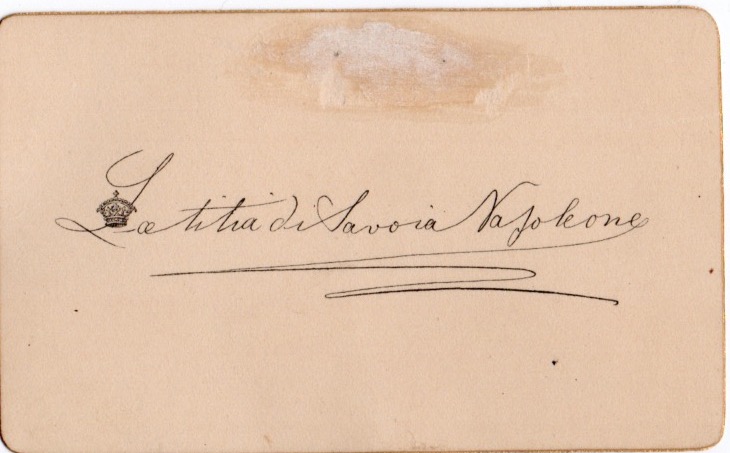 Lætitia di Savoia Napoleone